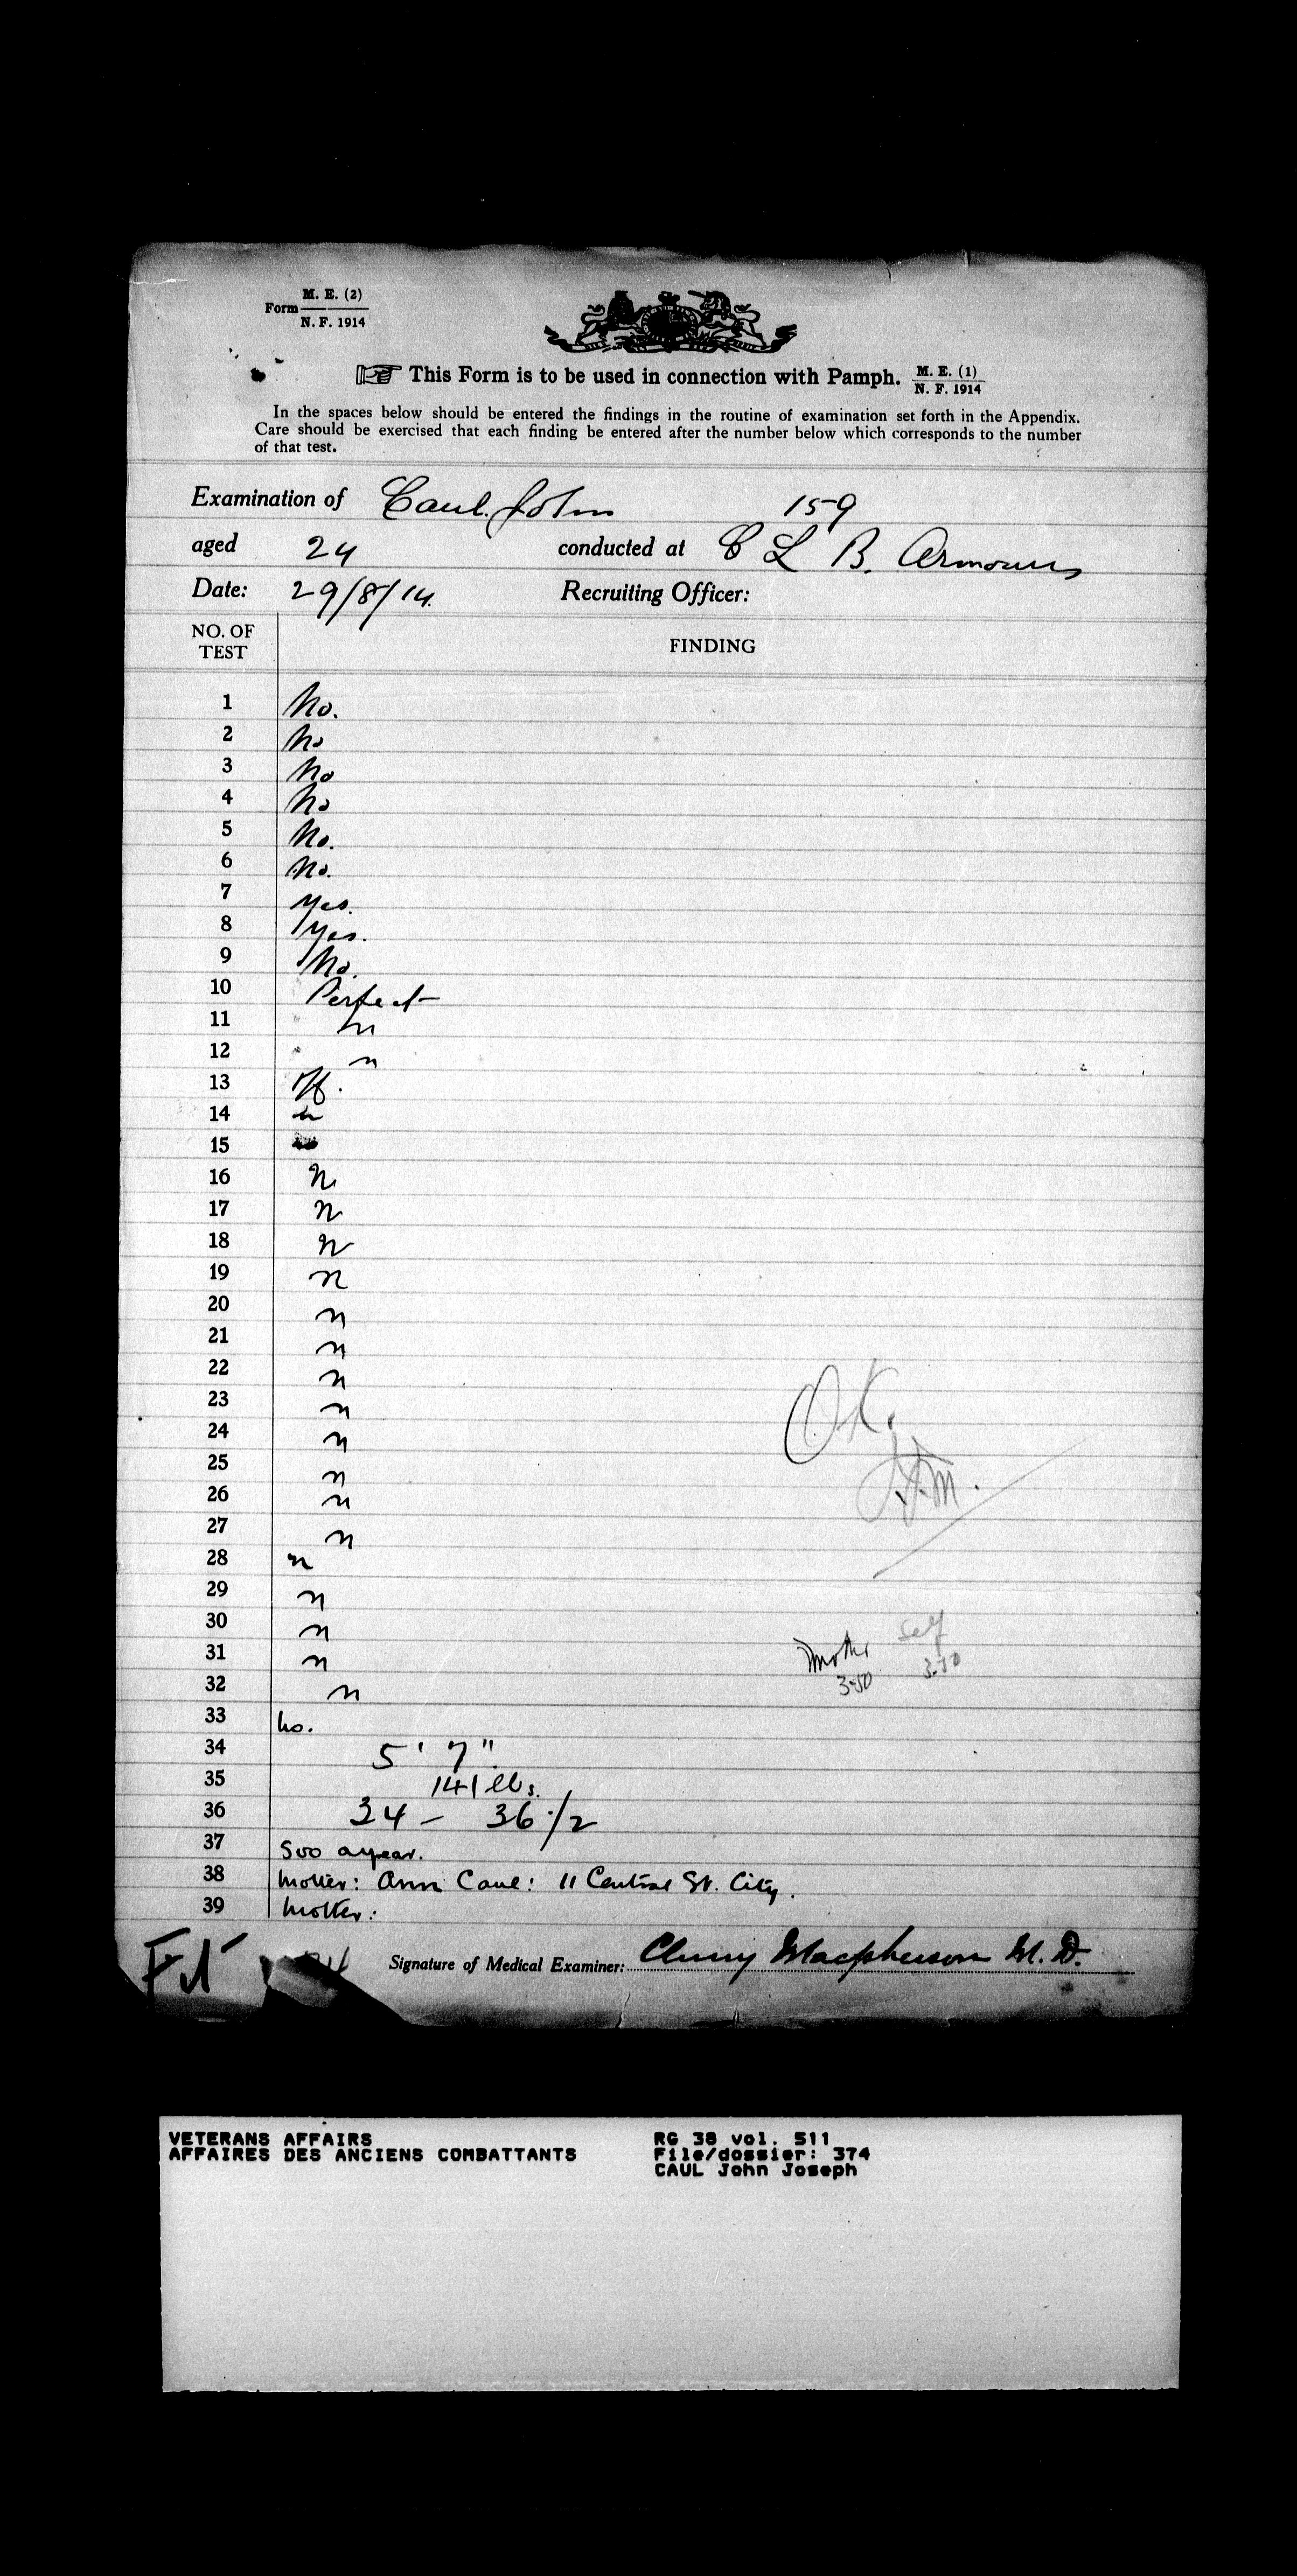 Form M. E. (2)
N. F. 1914
This Form is to be used in connection with Pamph. M. E. (1)
N. F. 1914
In the spaces below should be entered the findings in the routine of examination set forth in the Appendix.
Care should be exercised that each finding be entered after the number below which corresponds to the number
of that test.
Examination of Caul. John 159
aged 24 conducted at C L B. Armoury
Date: 29/8/14. Recruiting Officer:
NO. OF TEST FINDING
1 No.
2 No
3 No
4 No
5 No.
6 No.
7 Yes.
8 Yes.
9 No.
10 Perfect
11 n
12 n
13
14 n
15
16 n
17 n
18 n
19 n
20 n
21 n
22 n
23 n
24 n
25 n
26 n
27 n
28 n
29 n
30 n
31 n
32 n
33 no.
34 5' 7"
35 141 lbs.
36 34 – 36 1/2
37 500 a year.
38 Mother: Ann Caul: 11 Central St. City.
39 Mother:
O.K.
Mother Self
3.50 3.50
Signature of Medical Examiner: Cluny Macpherson M. D.
VETERANS AFFAIRS RG 38 vol. 511
AFFAIRES DES ANCIENS COMBATTANTS File/dossier: 374
CAUL John Joseph